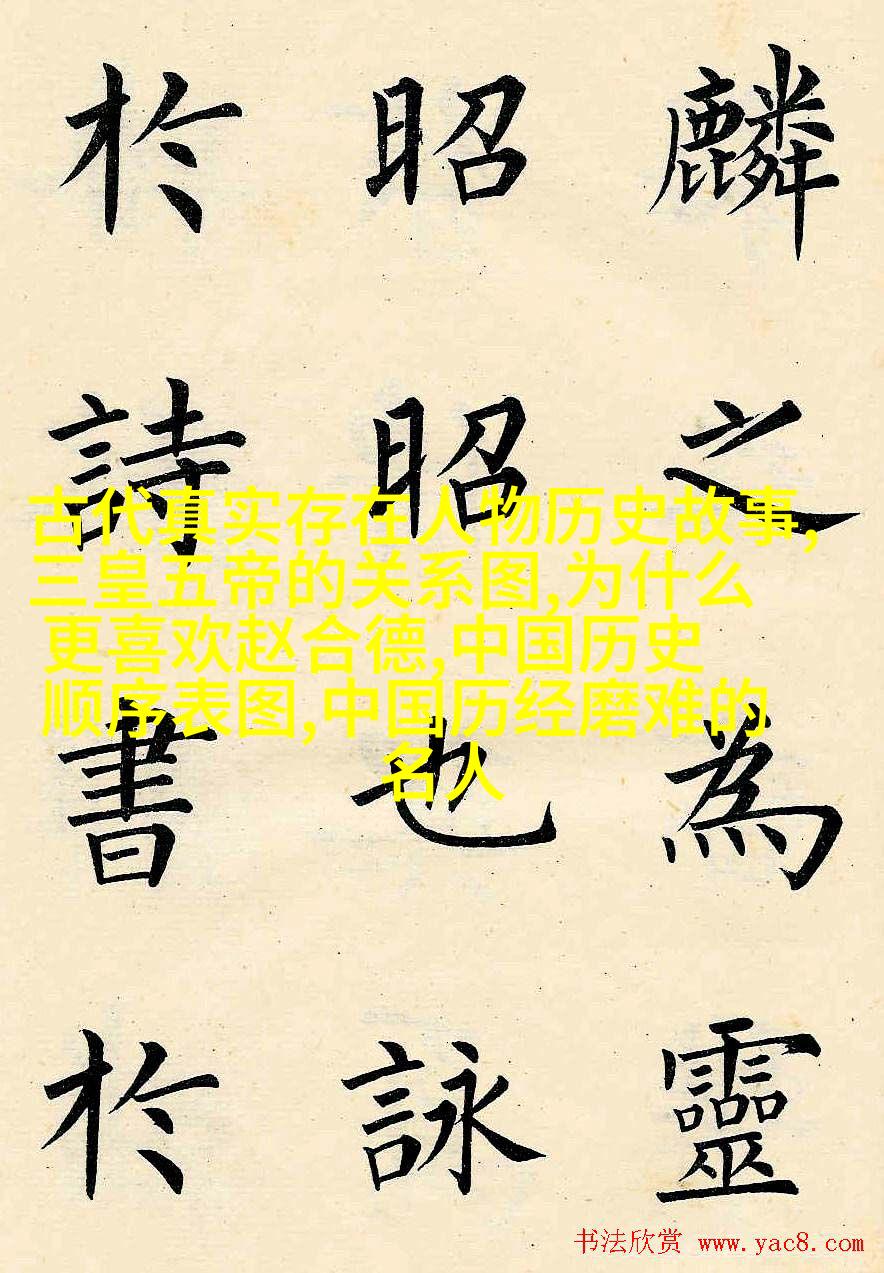 麟之為靈
昭昭也詠
於詩書於
古代真实存在人物历史故事,
三皇五帝的关系图,为什么
更喜欢赵合德,中国历史
顺序表图,中国历经磨难的
名人
书法欣赏 www.yac8.com